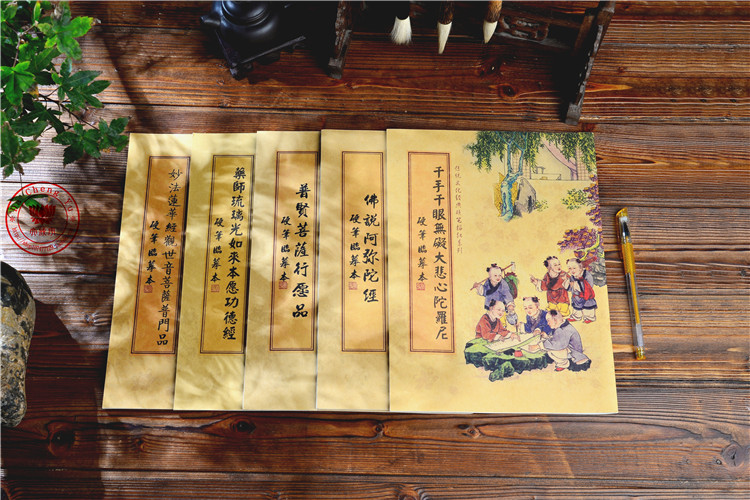 妙法蓮華經觀世音菩薩普門品
硬筆臨摹本
藥師琉璃光如來本愿功德經
硬筆臨摹本
普賢菩薩行愿品
硬筆臨摹本
佛說阿弥陀經
硬筆臨摹本
千手千眼無礙大悲心陀羅尼
硬筆臨摹本